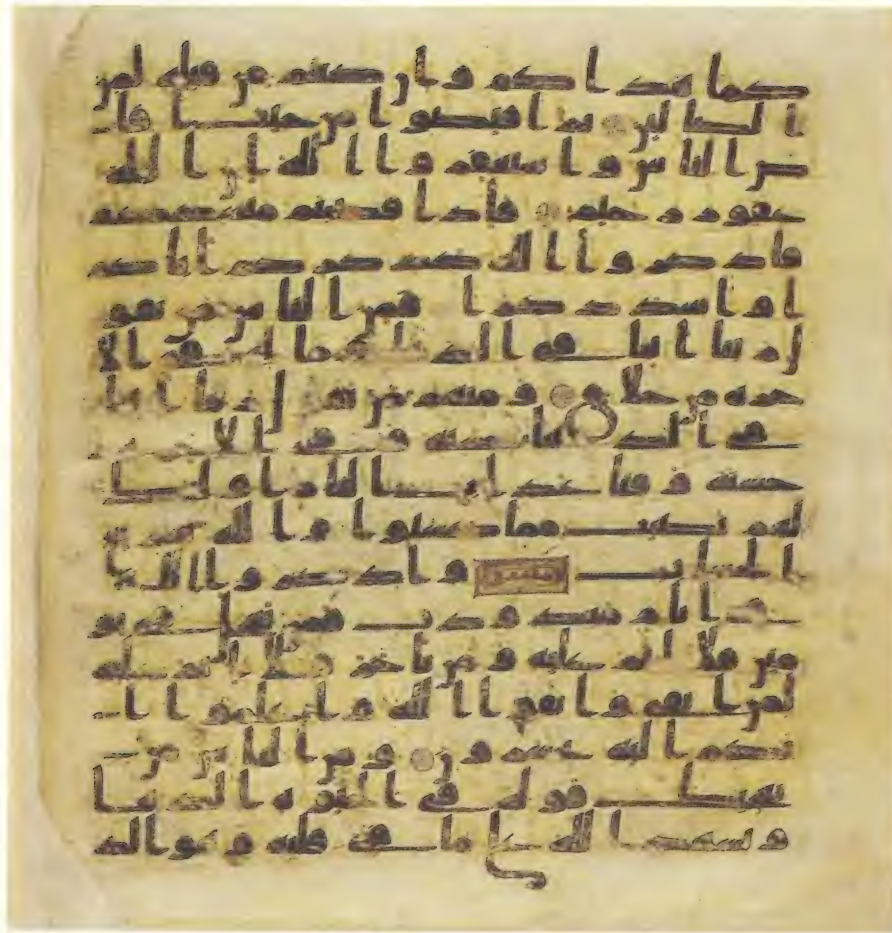 كما هدىكم وان كنتم من قبله لمن
الضالين ثم افيضوا من حيث افا
ض الناس واستغفروا الله ان الله
غفور رحيم فاذا قضيتم منسككم
فاذكروا الله كذكركم اباكم
او اشد ذكرا فمن الناس من يقو
ل ربنا اتنا في الدنيا وما له في الا
خرة من خلاق ومنهم من يقول ربنا اتنا
في الدنيا حسنة وفي الاخرة
حسنة وقنا عذاب النار اولئك
لهم نصيب مما كسبوا والله سريع
الحساب واذكروا الله
في ايام معدودت فمن تعجل في يو
مين فلا اثم عليه ومن تاخر فلا اثم عليه
لمن اتقى واتقوا الله واعلموا ا
نكم اليه تحشرون ومن الناس من
يعجبك قوله في الحيوة الدنيا
ويشهد الله على ما في قلبه وهو الد